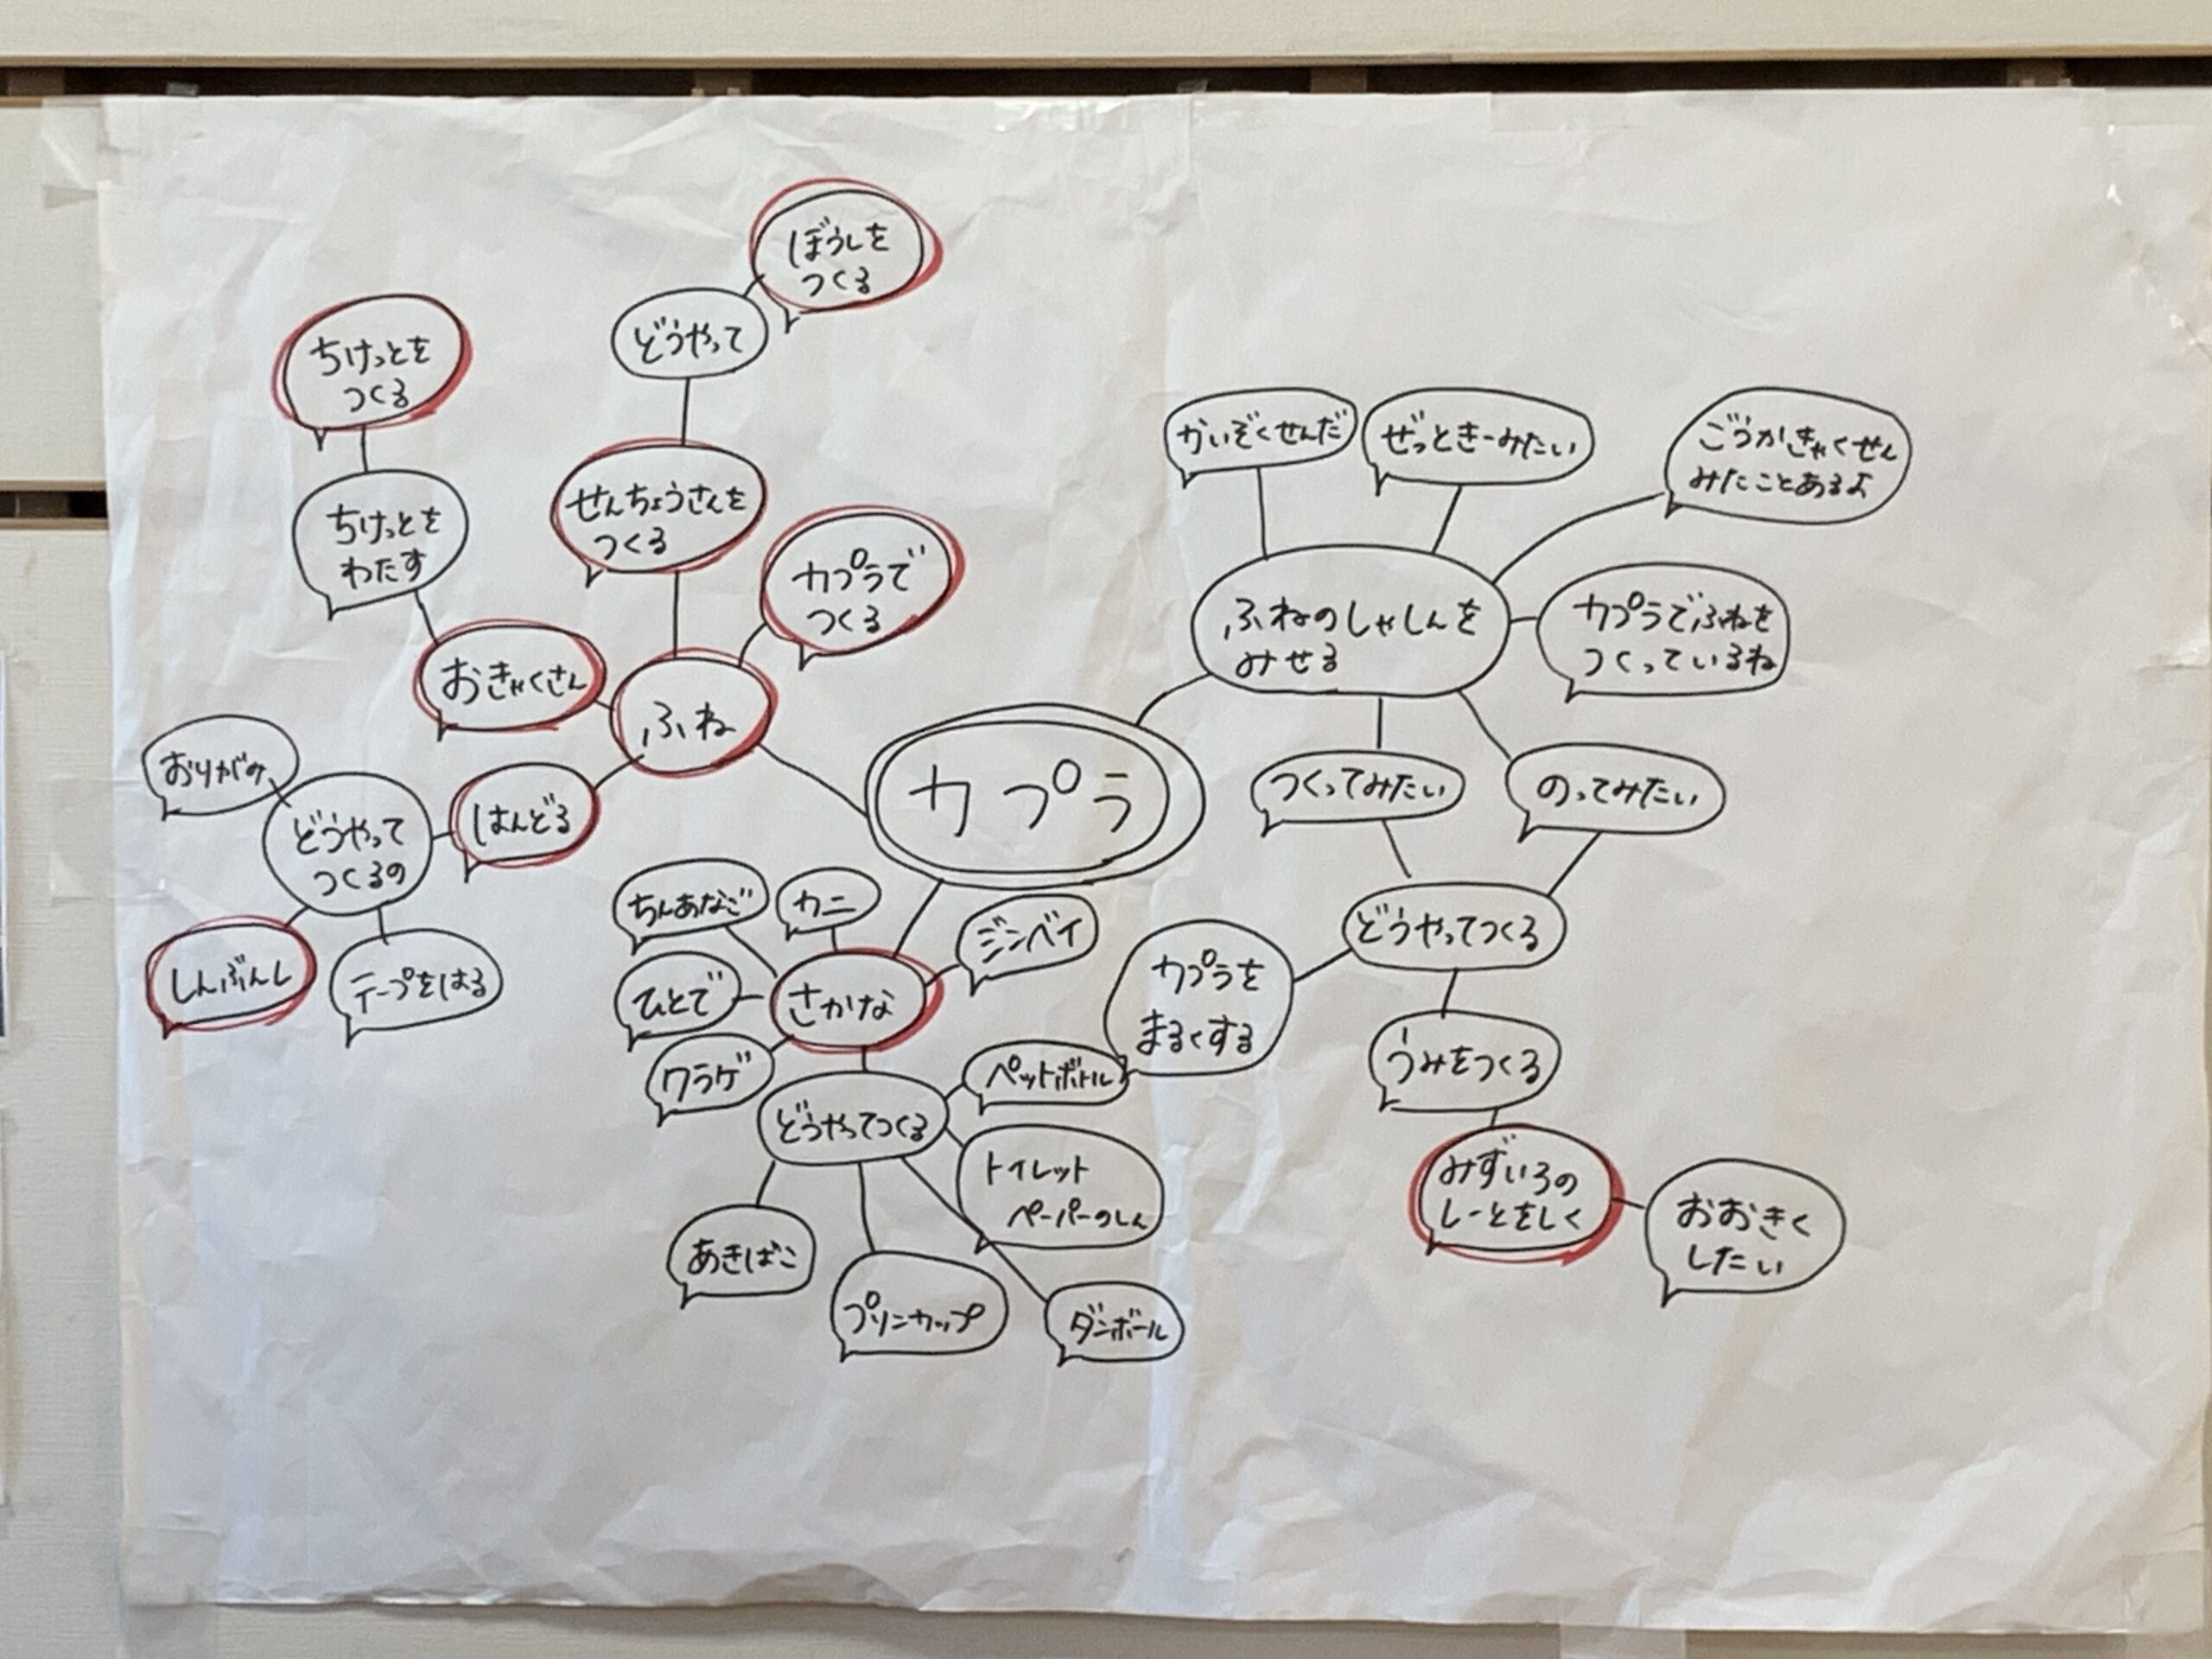 ぼうしを
つくる
どうやって
ちけっとを
つくる
せんちょうさんを
つくる
ちけっとを
わたす
カプラで
つくる
おきゃくさん
ふね
はんどる
おりがみ
どうやって
つくるの
しんぶんし
テープをはる
カプラ
ちんあなご
カニ
ジンベイ
ひとで
さかな
クラゲ
どうやってつくる
ペットボトル
トイレット
ペーパーのしん
あきばこ
プリンカップ
ダンボール
かいぞくせんだ
ぜっときーみたい
ごうかきゃくせん
みたことあるよ
ふねのしゃしんを
みせる
カプラでふねを
つくっているね
つくってみたい
のってみたい
どうやってつくる
カプラを
まるくする
うみをつくる
みずいろの
しーとをしく
おおきく
したい